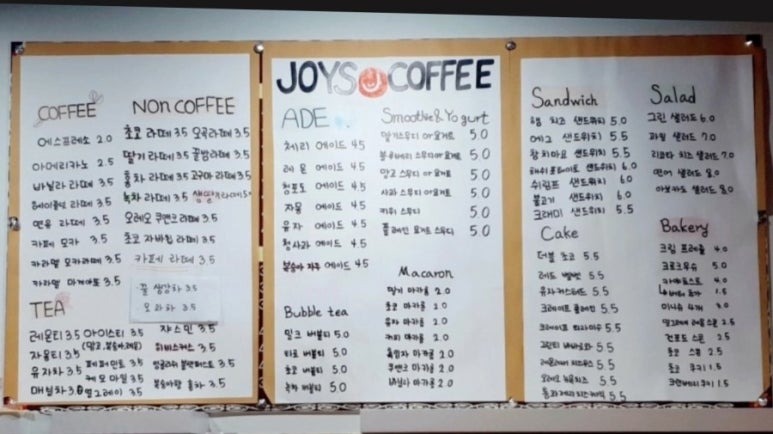 JOYS COFFEE
COFFEE
에스프레소 2.0
아메리카노 2.5
바닐라 라떼 3.5
헤이즐럿 라떼 3.5
연유 라떼 3.5
카페 모카 3.5
카라멜 모카라떼 3.5
카라멜 마게아또 3.5
NON COFFEE
초코 라떼 3.5 오곡라떼 3.5
딸기 라떼 3.5 꿀밤라떼 3.5
홍차 라떼 3.5 고구마 라떼 3.5
녹차 라떼 3.5
오레오 쿠앤크라떼 3.5
초코 자바칩 라떼 3.5
카페 라떼 3.5
꿀 생강차 3.5
모과차 3.5
TEA
레몬티 3.5 아이스티 3.5
자몽티 3.5 (망고,복숭아,레몬)
유자차 3.5 페퍼민트 3.5
매실차 3.5 케모마일 3.5
얼그레이 3.5
쟈스민 3.5
히비스커스 3.5
잉글리쉬 블랙퍼스트 3.5
복숭아향 홍차 3.5
ADE
체리 에이드 4.5
레몬 에이드 4.5
청포도 에이드 4.5
자몽 에이드 4.5
유자 에이드 4.5
청사과 에이드 4.5
복숭아 자두 에이드 4.5
Bubble tea
밀크 버블티 5.0
타로 버블티 5.0
초코 버블티 5.0
녹차 버블티 5.0
Smoothie & Yogurt
딸기스무디 or 요거트 5.0
블루베리 스무디 or 요거트 5.0
망고 스무디 or 요거트 5.0
사과 스무디 or 요거트 5.0
키위 스무디 5.0
플레인 요거트 스무디 5.0
Macaron
딸기 마카롱 2.0
초코 마카롱 2.0
유자 마카롱 2.0
커피 마카롱 2.0
흑임자 마카롱 2.0
쿠앤크 마카롱 2.0
바닐라 마카롱 2.0
Sandwich
햄 치즈 샌드위치 5.0
에그 샌드위치 5.5
참치마요 샌드위치 5.5
샌드위치 6.0
쉬림프 샌드위치 6.0
불고기 샌드위치 6.0
크래미 샌드위치 5.5
Cake
더블 초코 5.5
레드 벨벳 5.5
유자카스테라 5.5
크레이프 5.5
크레이프 티라미수 5.5
5.5
5.5
오레오 5.5
5.5
Salad
그린 샐러드 6.0
과일 샐러드 7.0
리코타 치즈 샐러드 7.0
연어 샐러드 8.0
아보카도 샐러드 8.0
Bakery
크림 프레즐 4.0
크로크무슈 5.0
4.0
1.5
미니슈 4개 3.0
얼그레이 레몬스콘 2.5
스콘 2.5
초코 스콘 2.5
초코 쿠키 1.5
크랜베리 쿠키 1.5